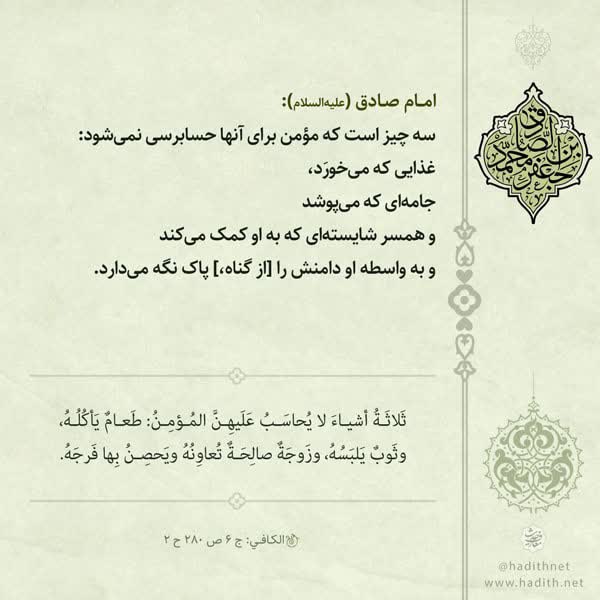 امـام صـادق (علیه‌السلام):
سه چیز است که مؤمن برای آنها حسابرسی نمی‌شود:
غذایی که می‌خورَد،
جامه‌ای که می‌پوشد
و همسر شایسته‌ای که به او کمک می‌کند
و به واسطه او دامنش را [از گناه،] پاک نگه می‌دارد.
جعفر بن محمد الصادق
ثَلاثَـةُ أشیـاءَ لا یُحاسَـبُ عَلَیهِـنَّ المُـؤمِـنُ: طَعـامٌ یَأکُلُـهُ،
وثَوبٌ یَلبَسُهُ، وزَوجَةٌ صالِحَـةٌ تُعاوِنُهُ ویَحصِـنُ بِها فَرجَهُ.
الکافـي: ج ۶ ص ۲۸۰ ح ۲
@hadithnet
www.hadith.net